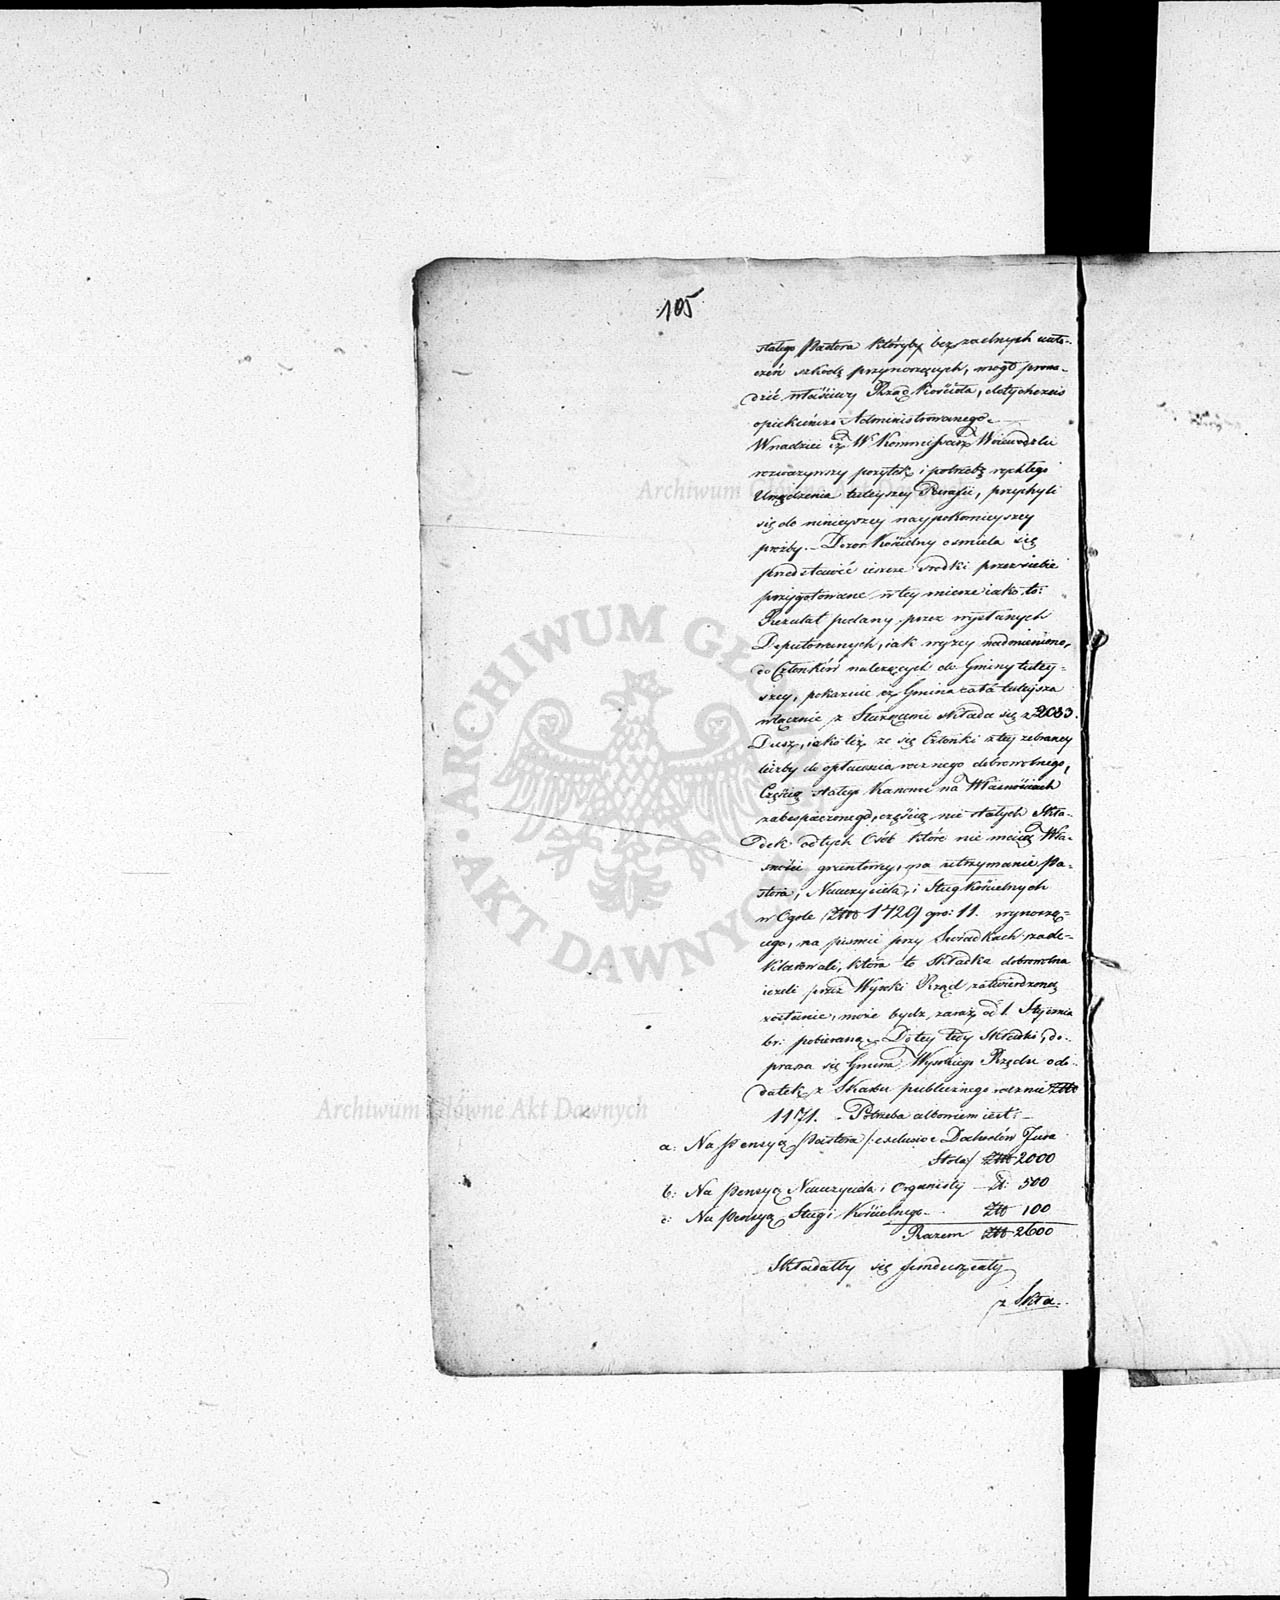 105
stałego Pastora któryby bez żadnych uwła-
czeń szkodę przynoszących, mógł prowa-
dzić właściwy Rząd Kościoła, dotychczas
opiekuńczo Administrowanego.
W nadziei iż W. Kommissarz Woiewodztw
rozważywszy pożytek i potrzebę rychłego
Urządzenia tuteyszey Parafii, przychyli
się do ninieyszey naypokornieyszey
prożby. – Dozor Kościelny ośmiela się
przedstawić ieszcze środki przez siebie
przygotowane w tey mierze iako to:
Rezultat podany przez wysłanych
Deputowanych, iak wyżey nadmieniono,
do Członków należących do Gminy tutey-
szey, pokazuie iż Gmina cała tuteysza
włącznie z Służącemi składa się z 2033.
Dusz, iako też że się Członki z tey zebraney
liczby do opłacania rocznego dobrowolnego,
Częścią stałego Kanonu na Własnościach
zabespieczonego, częścią nie stałych Skła-
dek od tych Osób które nie maią Wła-
sności gruntowy, na utrzymanie Pa-
stora, Nauczyciela, i Sług Kościelnych
w Ogóle Złto 1429 gro: 11. wynoszą-
cego, na pismie przy Świadkach zade-
klarowali, która to Składka dobrowolna
ieżeli przez Wysoki Rząd zatwierdzoną
zostanie, może bydz zaraz od 1. Stycznia
br: pobieraną. Do tey tedy Składki, do-
prasza się Gmina Wysokiego Rządu o do-
datek z Skarbu publicznego rocznie Złto
1171. – Potrzeba albowiem iest: –
a: Na Pensyą Pastora /: exclusive Dochodów Jura
Stola / Złto 2000
b: Na Pensyą Nauczyciela i Organisty – Zł: 500
c: Na Pensyą Sługi Kościelnego . . Złto 100
Razem Złto 2600
Składałby się fundusz cały
z Skła-
Archiwum Główne Akt Dawnych
ARCHIWUM GŁÓWNE AKT DAWNYCH
Archiwum Główne Akt Dawnych